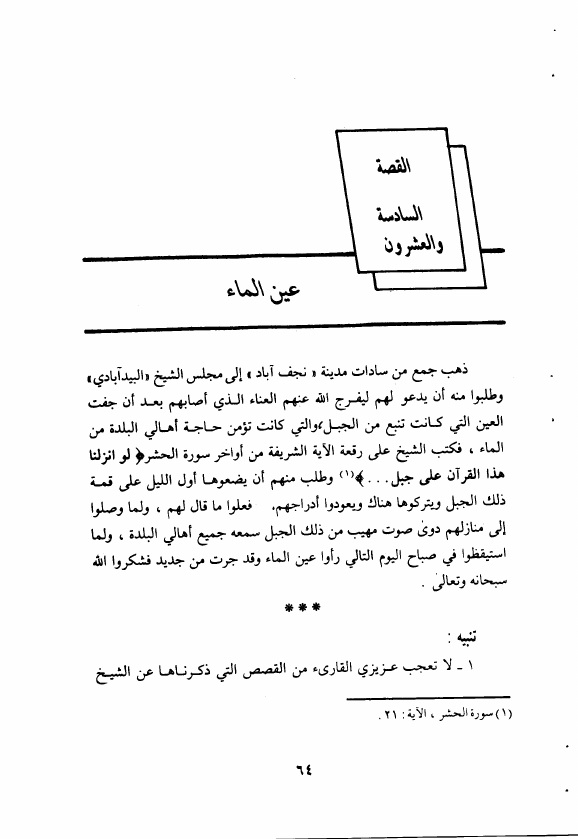 القصة
السادسة
والعشرون
عين الماء
ذهب جمع من سادات مدينة « نجف آباد » إلى مجلس الشيخ «البيدآبادي»
وطلبوا منه أن يدعو لهم ليفرج الله عنهم العناء الذي أصابهم بعد أن جفت
العين التي كانت تنبع من الجبل، والتي كانت تؤمن حاجة أهالي البلدة من
الماء ، فكتب الشيخ على رقعة الآية الشريفة من أواخر سورة الحشر ﴿ لو انزلنا
هذا القرآن على جبل . . . ﴾(١) وطلب منهم أن يضعوها أول الليل على قمة
ذلك الجبل ويتركوها هناك ويعودوا أدراجهم، فعلوا ما قال لهم ، ولما وصلوا
إلى منازلهم دوىٰ صوت مهيب من ذلك الجبل سمعه جميع أهالي البلدة ، ولما
استيقظوا في صباح اليوم التالي رأوا عين الماء وقد جرت من جديد فشكروا الله
سبحانه وتعالىٰ .
***
تنبيه :
١ ـ لا تعجب عزيزي القارىء من القصص التي ذكرناها عن الشيخ
(١) سورة الحشر ، الآية : ٢١ .
٦٤